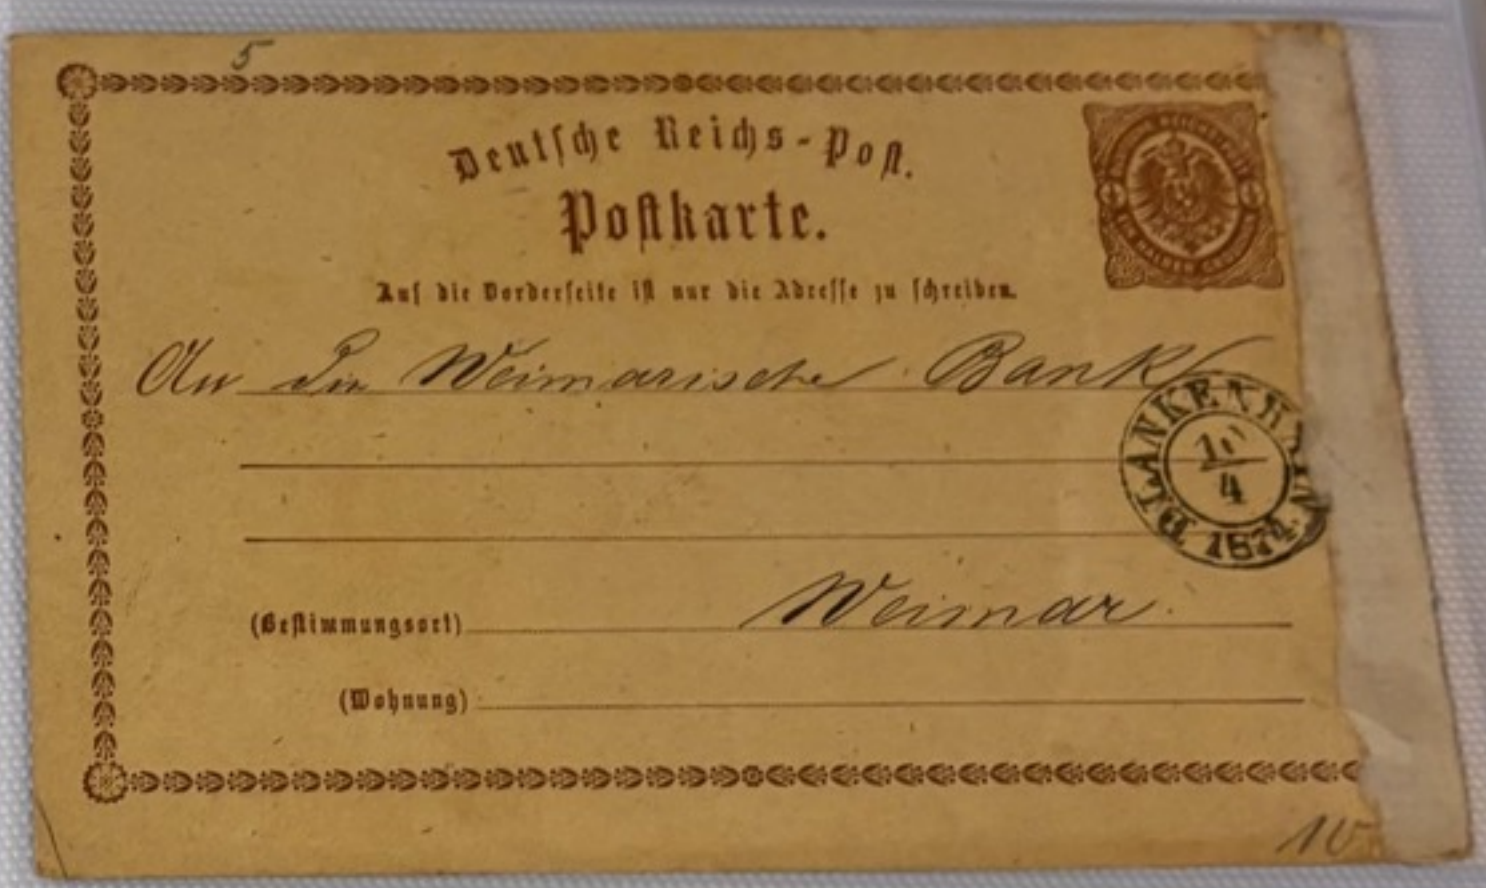 5
Deutsche Reichs-Post.
Postkarte.
Auf die Vorderseite ist nur die Adresse zu schreiben.
An die Weimarische Bank
BLANKENHAIN
10
4
1874
Weimar.
(Bestimmungsort)
(Wohnung)
10